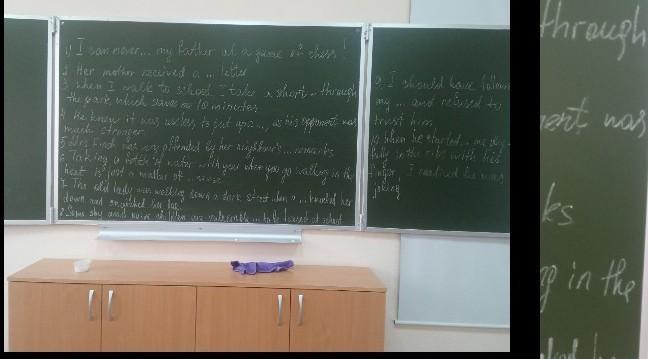 1) I can never... my father at a game of chess!
2. Her mother received a ... letter
3. When I walk to school I take a short - through
the park, which saves me 10 minutes.
4. He knew it was useless to put up a ..., as his opponent was
much stronger.
5. Mrs Finch was very offended by her neighbour's ... remarks
6. Taking a bottle of water with you when you go walking in the
heat is just a matter of ... sense
7. The old lady was walking down a dark street when a ... knocked her
down and snatched her bag
8. Some shy and naive children are vulnerable ... to be teased at school
9. I should have followed
my ... and refused to
trust him.
10. When he started ... me
in the ribs with his
finger, I realised he was
joking
through
ent was
ks
g in the